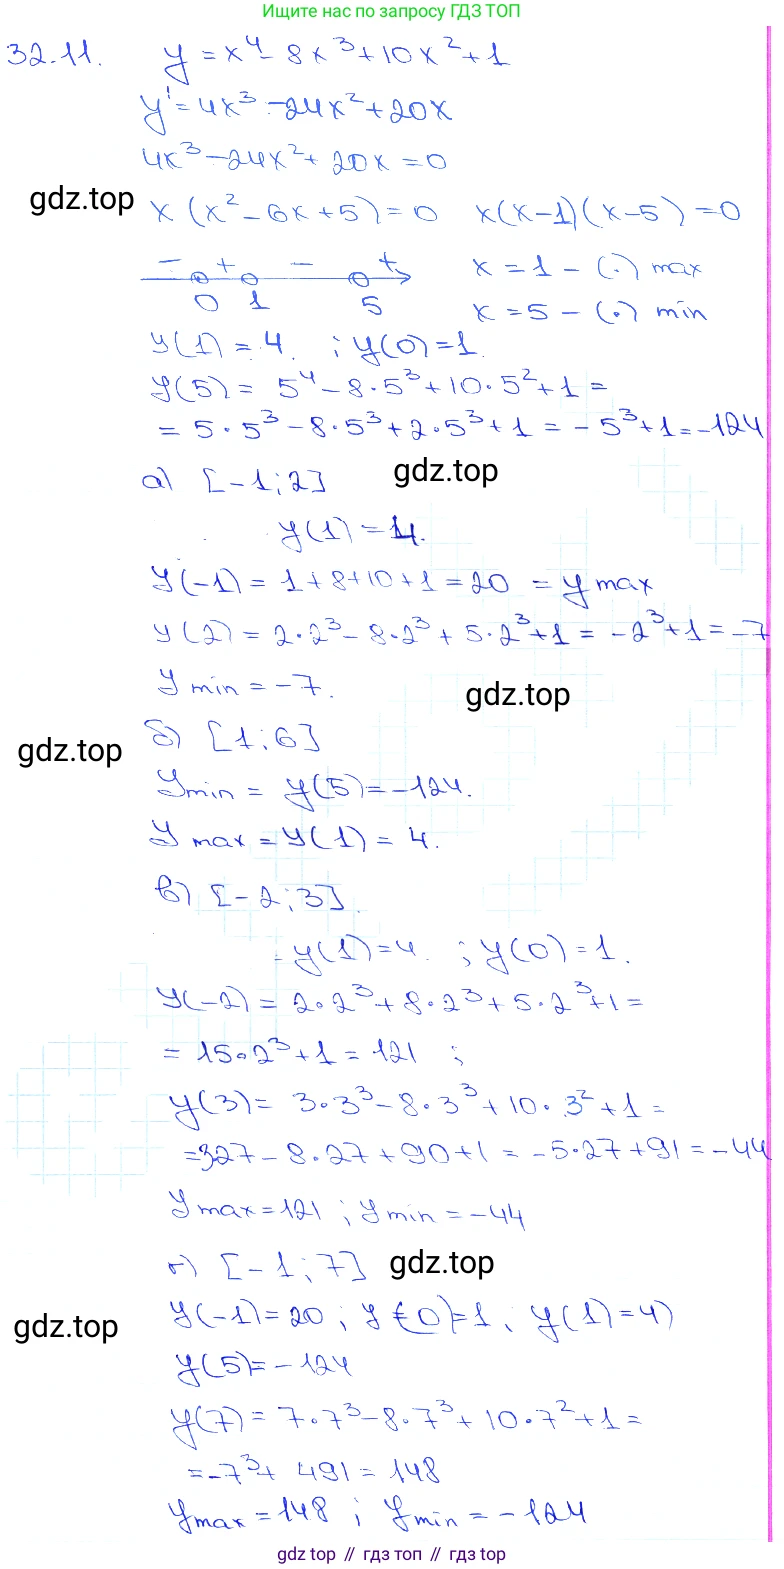 Ищите нас по запросу ГДЗ ТОП
32.11. y = x⁴ - 8x³ + 10x² + 1
y' = 4x³ - 24x² + 20x
4x³ - 24x² + 20x = 0
gdz.top
x (x² - 6x + 5) = 0 x(x-1)(x-5) = 0
- + - + x = 1 - (.) max
0 1 5 x = 5 - (.) min
y(1) = 4. ; y(0) = 1.
y(5) = 5⁴ - 8·5³ + 10·5² + 1 =
= 5·5³ - 8·5³ + 2·5³ + 1 = -5³ + 1 = -124
а) [-1; 2] gdz.top
y(1) = 4.
y(-1) = 1 + 8 + 10 + 1 = 20 = y max
y(2) = 2·2³ - 8·2³ + 5·2³ + 1 = -2³ + 1 = -7
y min = -7.
gdz.top
gdz.top
б) [1; 6]
y min = y(5) = -124.
y max = y(1) = 4.
в) [-2; 3]
y(1) = 4. ; y(0) = 1.
y(-2) = 2·2³ + 8·2³ + 5·2³ + 1 =
= 15·2³ + 1 = 121 ;
y(3) = 3·3³ - 8·3³ + 10·3² + 1 =
= 327 - 8·27 + 90 + 1 = -5·27 + 91 = -44
y max = 121 ; y min = -44
г) [-1; 7] gdz.top
y(-1) = 20 ; y(0) = 1 ; y(1) = 4)
gdz.top
y(5) = -124
y(7) = 7·7³ - 8·7³ + 10·7² + 1 =
= -7³ + 491 = 148
y max = 148 ; y min = -124
gdz top // гдз топ // gdz top